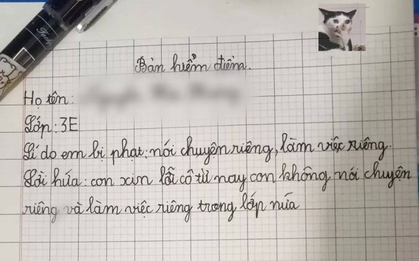 Bản kiểm điểm.
Họ tên:
Lớp: 3E
Lí do em bi phạt: nói chuyện riêng, làm việc riêng.
Lời hứa: con xin lỗi cô từ nay con không nói chuyện
riêng và làm việc riêng trong lớp nữa